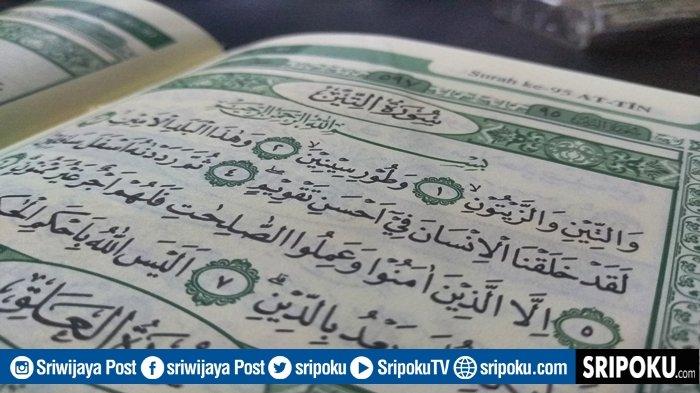 Surah ke-95 AT-TÎN
٥٩٧ ٩٥
سُوْرَةُ التِّيْنِ
بِسْمِ اللّٰهِ الرَّحْمٰنِ الرَّحِيْمِ
وَالتِّيْنِ وَالزَّيْتُوْنِۙ ١ وَطُوْرِ سِيْنِيْنَۙ ٢ وَهٰذَا الْبَلَدِ الْاَمِيْنِ
لَقَدْ خَلَقْنَا الْاِنْسَانَ فِيْٓ اَحْسَنِ تَقْوِيْمٍۖ ٤ ثُمَّ رَدَدْنٰهُ اَسْفَلَ
٥ اِلَّا الَّذِيْنَ اٰمَنُوْا وَعَمِلُوا الصّٰلِحٰتِ فَلَهُمْ اَجْرٌ غَيْرُ
بَعْدُ بِالدِّيْنِۗ ٧ اَلَيْسَ اللّٰهُ بِاَحْكَمِ
سُوْرَةُ الْعَلَقِ
Sriwijaya Post sriwijaya Post sripoku SripokuTV sripoku.com
SRIPOKU.com